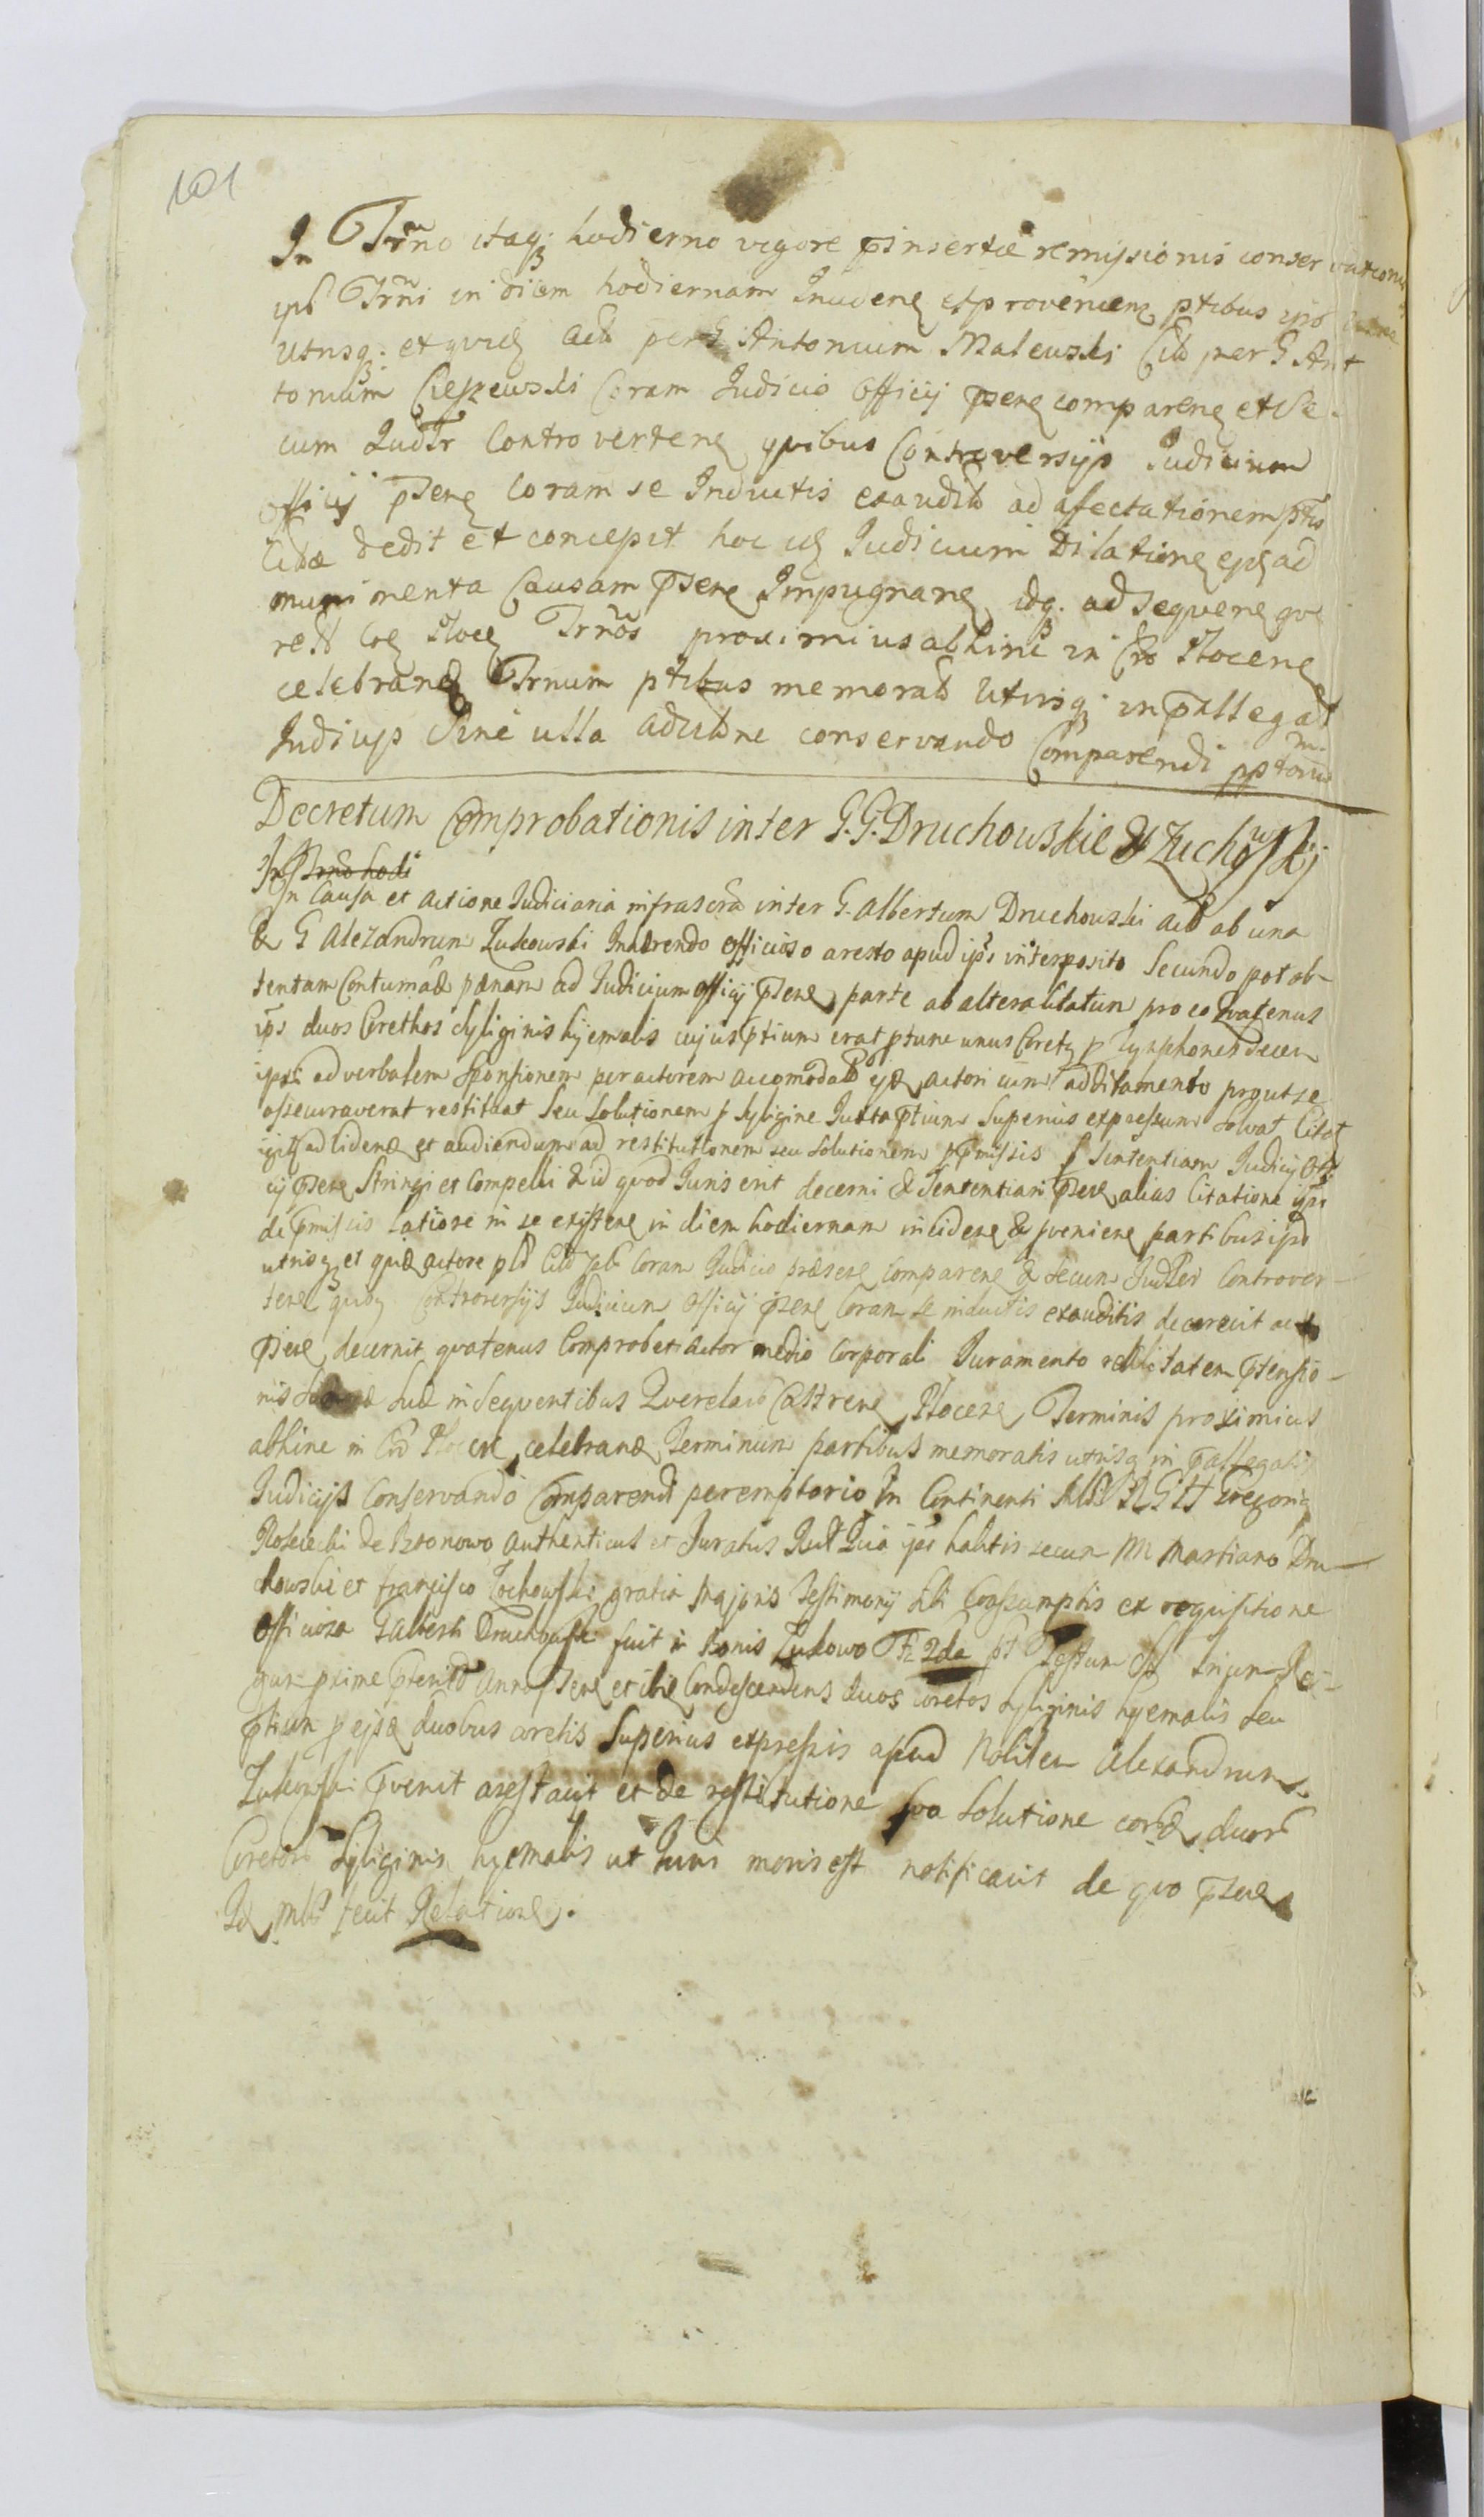 101
In Trño itaq hodierno vigore pinsertæ remissionis conservationis
ips Trñi in diem hodiernam Incidenz et provenienz ptibus ips
Utrisq: et quidz Act per G Antonium Malewski Citt per G An
tonium Cieszewski Coram Iudicio Officij psenz comparenz et Se
cum Iudtr Controvertenz quibus Controversijs Iudicium
Officij psenz Coram se Inductis exaudit ad afectationem ptis
Citæ dedit et concepit hoc idz Iudicium Dilationz ejz ad
munimenta Causam psenz Impugnanz idq. ad sequenz que
rell Coz Plocz Trños proximius abhinc in Cro Plocenz
celebranz Trnum ptibus memorat Utrisq: in pallegat
Iudicijs Sine ulla aducitone conservando Comparendi pptorium
Decretum Comprobationis inter G.G. Druchowskie & Zuchowskij
In Trño hodi
In Causa et actione Iudiciaria infrascra inter G. Albertum Druchowski act ab una
& G Alexandrum Zukowski Inhærendo officioso aresto apud ips interposito Secundo post ob-
tentam Contumac pænam ad Iudicium officij psenz parte ab altera Citatum pro eo Quatenus
ips duos Corethos Syliginis hyemalis cujus ptium erat ptunc unus Coretz p Tynphones decem
ipsi ad verbalem Sponsionem per actorem accomodat ejdz actori cum additamento prout se
assecuraverat restituat seu Solutionem p Syligine Iuxta ptium Superius expressum Solvat Citatz
igitr ad videnz et audiendum ad restitutionem seu Solutionem ppmissis p Sententiam Iudicij Offi
cij psenz Stringi et Compelli & id quod Iuris erit decerni & Sententiari psenz alias Citatione ips
de pmissis Latiore in se existenz in diem hodiernam incidenz & pvenienz partibus ips
utrisq et quidz actore pld Citt Coram Iudicio præsenz comparenz & Secum Iudter Controver-
tenz quibz Controversijs Iudicium Officij psenz Coram se inductis exauditis decrevit ac
psenz decernit quatenus Comprobet actor medio Corporali Iuramento realitatem ptensio-
nis suæ in Sequentibus Querelarū Castrenz Plocenz Terminis proximius
abhinc in Cro Plocen celebranz Terminum partibus memoratis utrisq in pallegatis
Iudicijs Conservando Comparendi peremptorio In Continenti Mltr R G H Gregorig
Rosciecki de Bronowo authenticus et Iuratus Rult Quia ips habitis secum NN Martiano Dru-
chowski et Francisco Cochowski gratia majoris Testimonij sibi Coassumptis ex requisitione
Officiosa G Alberti Druchowski fuit in Bonis Zukowo Fr 2da pt Festum SS Trium Re-
gum prime pterito Anno psenz et ibiz Condescendens duos coretos Syliginis hyemalis seu
ptium p ejsdz duobus coretis Superius expressis apud Nobilem Alexandrum
Zukowski pvenit arestavit et de restitutione seu Solutione eordz duor
Coretor Syliginis hyemalis ut Iuris moris est notificavit de quo psenz
Idz Mltr fecit Relationz.